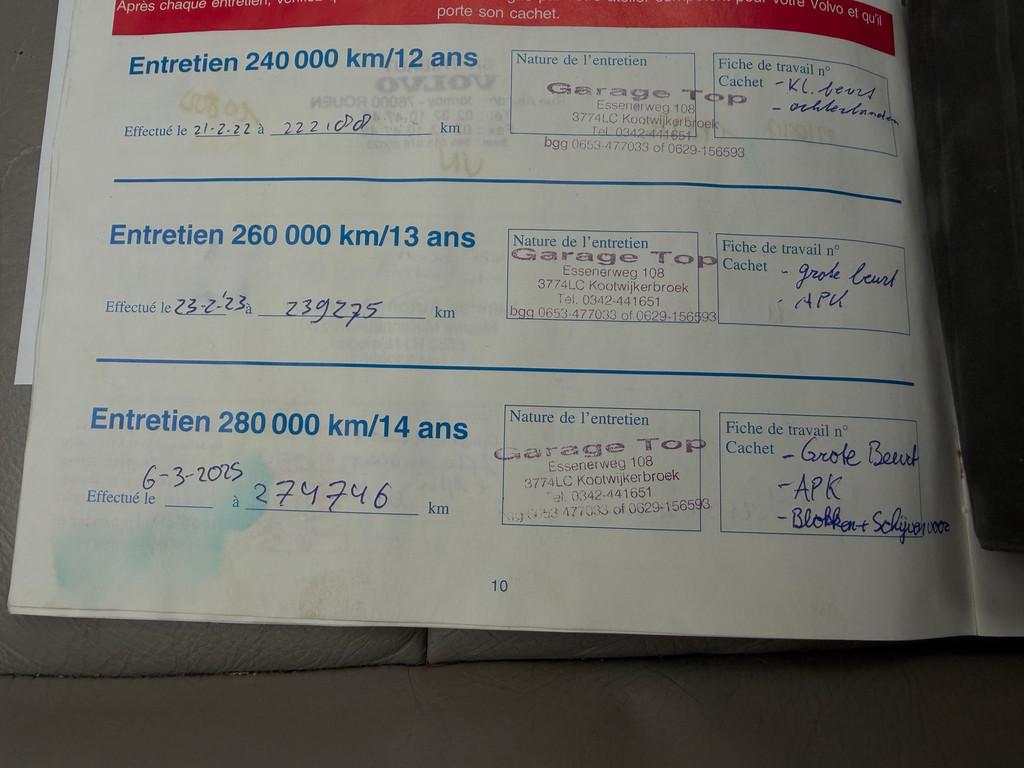 porte son cachet.
Entretien 240 000 km/12 ans
Effectué le 21-2-22 à 222188 km
Nature de l'entretien
Garage Top
Essenerweg 108
3774LC Kootwijkerbroek
Tel. 0342-441651
bgg 0653-477033 of 0629-156593
Fiche de travail n°
Cachet - KL. beurt
- achterbanden
Entretien 260 000 km/13 ans
Effectué le 23-2-'23 à 239275 km
Nature de l'entretien
Garage Top
Essenerweg 108
3774LC Kootwijkerbroek
Tel. 0342-441651
bgg 0653-477033 of 0629-156593
Fiche de travail n°
Cachet - grote beurt
- APK
Entretien 280 000 km/14 ans
Effectué le 6-3-2025 à 274746 km
Nature de l'entretien
Garage Top
Essenerweg 108
3774LC Kootwijkerbroek
Tel. 0342-441651
bgg 0653-477033 of 0629-156593
Fiche de travail n°
Cachet - Grote Beurt
- APK
- Blokken + Schijven voor
10